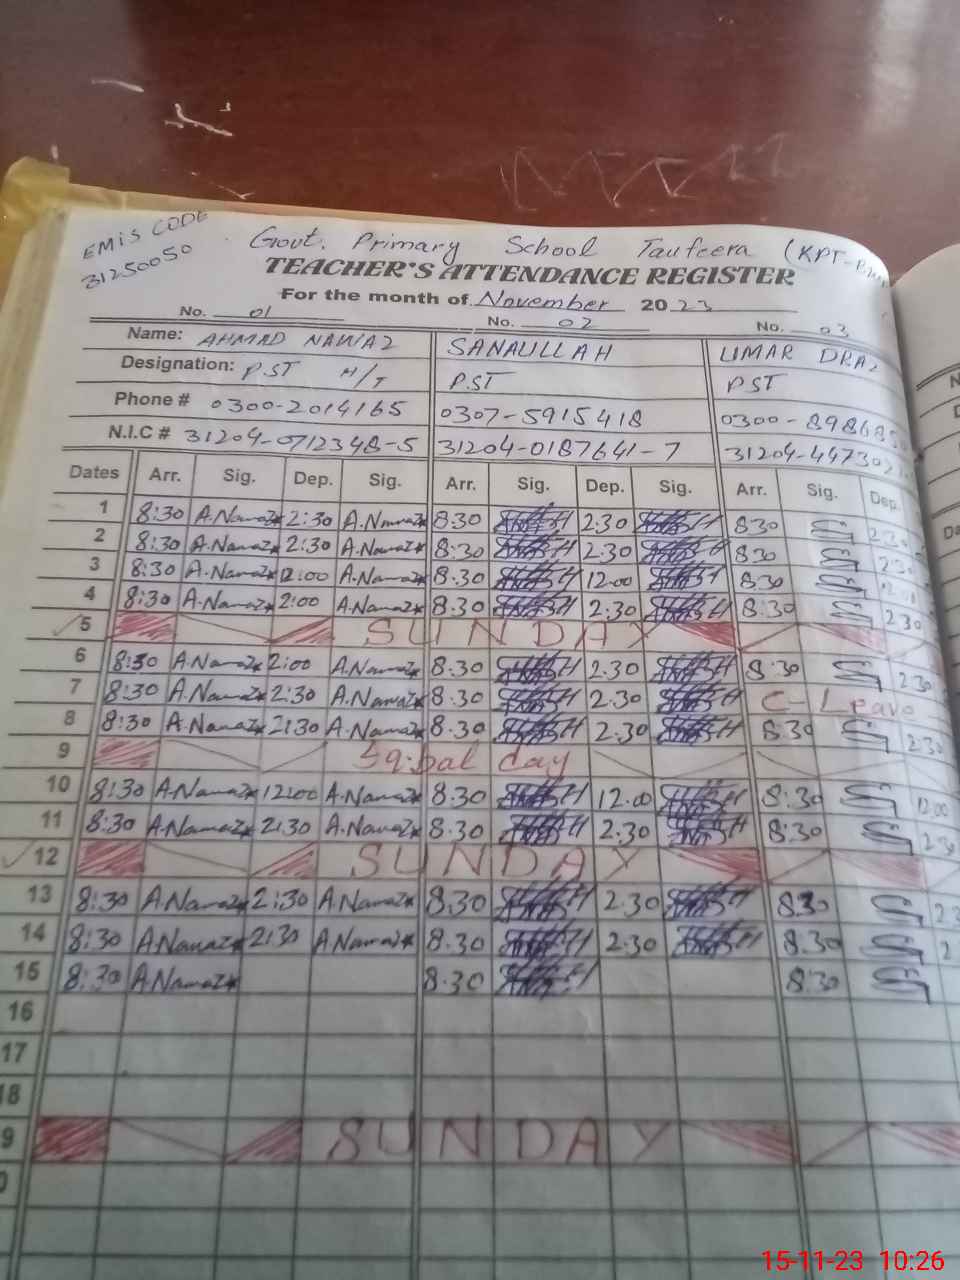 EMIS CODE
31250050
Govt. Primary School Taufeera (KPT-
TEACHER'S ATTENDANCE REGISTER
For the month of November 2023
No. 01 No. 02 No. 03
Name: AHMAD NAWAZ SANAULLAH UMAR DRAZ
Designation: P.ST H/T P.ST PST
Phone # 0300-2014165 0307-5915418 0300-89868
N.I.C # 31204-0712348-5 31204-0187641-7 31204-447302
Dates Arr. Sig. Dep. Sig. Arr. Sig. Dep. Sig. Arr. Sig. Dep.
1 8:30 A.Nawaz 2:30 A.Nawaz 8.30 2.30 830 2.30
2 8:30 A.Nawaz 2:30 A.Nawaz 8:30 2.30 830 2.30
3 8:30 A.Nawaz 12:00 A.Nawaz 8.30 12.00 8.30 12.00
4 8:30 A.Nawaz 2:00 A.Nawaz 8.30 2.30 8:30 2.30
5 SUNDAY
6 8:30 A.Nawaz 2:00 A.Nawaz 8.30 2.30 8:30 2.30
7 8:30 A.Nawaz 2:30 A.Nawaz 8.30 2.30 C-Leave
8 8:30 A.Nawaz 2:30 A.Nawaz 8.30 2.30 8:30 2.30
9 Iqbal day
10 8:30 A.Nawaz 12:00 A.Nawaz 8.30 12.00 8:30 12.00
11 8:30 A.Nawaz 2:30 A.Nawaz 8.30 2.30 8:30 2.30
12 SUNDAY
13 8:30 A.Nawaz 2:30 A.Nawaz 8.30 2.30 8.30
14 8:30 A.Nawaz 2:30 A.Nawaz 8.30 2.30 8.30
15 8:30 A.Nawaz 8.30 8:30
16
17
18
9 SUNDAY
15-11-23 10:26